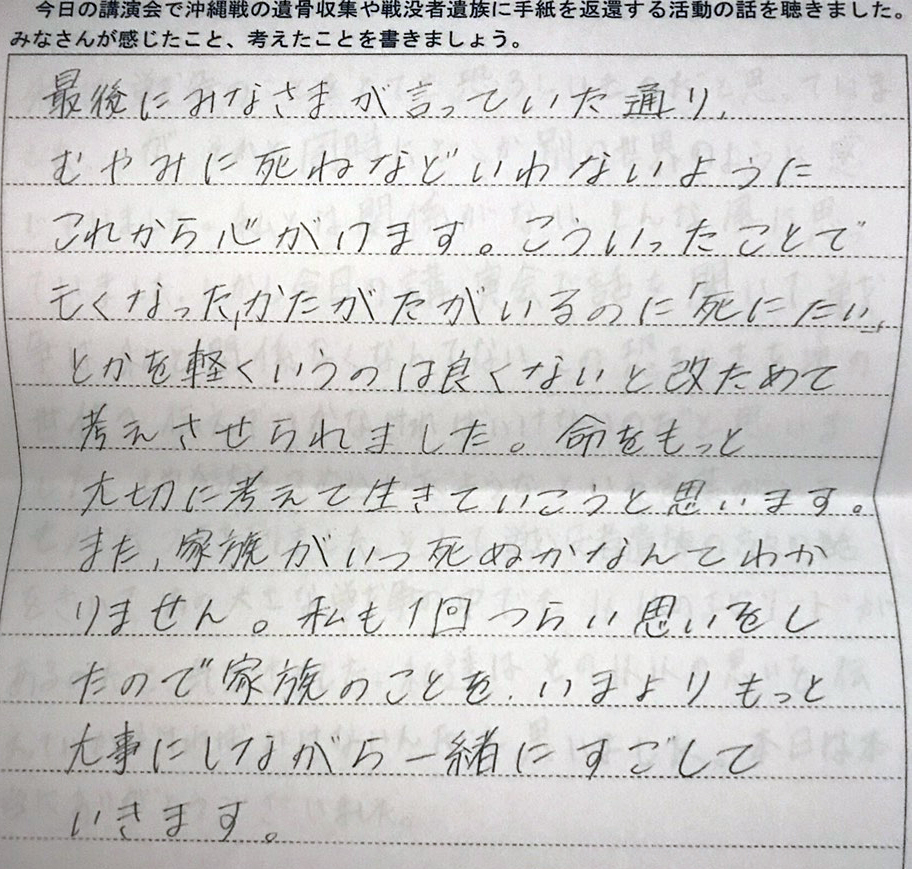 今日の講演会で沖縄戦の遺骨収集や戦没者遺族に手紙を返還する活動の話を聴きました。
みなさんが感じたこと、考えたことを書きましょう。
最後にみなさまが言っていた通り、
むやみに死ねなどいわないように
これから心がけます。こういったことで
亡くなった、かたがたがいるのに「死にたい」
とかを軽くいうのは良くないと改ためて
考えさせられました。命をもっと
大切に考えて生きていこうと思います。
また、家族がいつ死ぬかなんてわか
りません。私も1回つらい思いをし
たので家族のことを、いまよりもっと
大事にしながら一緒にすごして
いきます。